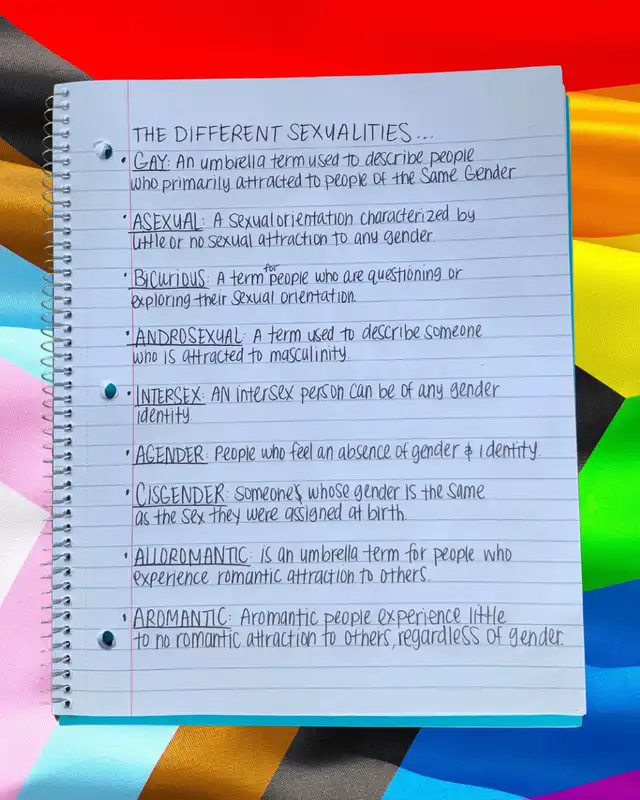 THE DIFFERENT SEXUALITIES...
• GAY: AN umbrella term used to describe people
who primarily attracted to people of the Same Gender
• ASEXUAL: A sexual orientation characterized by
little or no sexual attraction to any gender.
• BICURIOUS: A term for people who are questioning or
exploring their sexual orientation.
• ANDROSEXUAL: A term used to describe someone
who is attracted to masculinity
• INTERSEX: AN intersex person can be of any gender
identity
• AGENDER: People who feel an absence of gender & identity.
• CISGENDER: someone whose gender is the same
as the sex they were assigned at birth.
• ALLOROMANTIC: is an umbrella term for people who
experience romantic attraction to others.
• AROMANTIC: Aromantic people experience little
to no romantic attraction to others, regardless of gender.